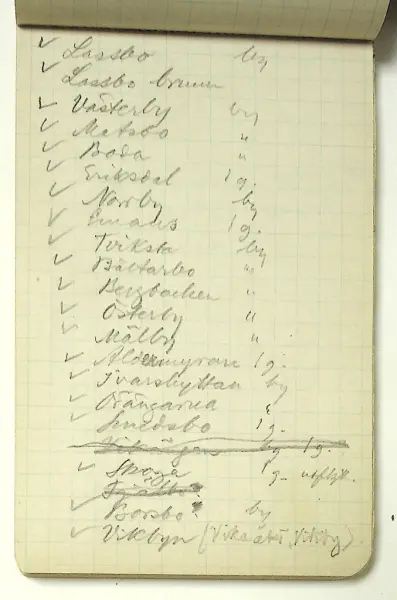 ✓ Lassbo by
✓ Lassbo brunn
✓ Västerby by
✓ Matsbo "
✓ Boda "
✓ Eriksdal 1 g.
✓ Norrby by
✓ Emaus 1 g.
✓ Tviksta by
✓ Bältarbo "
✓ Bergbacken "
✓ Österby "
✓ Mälby "
✓ Aldermyran 1 g.
✓ Ivarshyttan by
✓
✓ Smedsbo 1 g.
by 1 g.
✓ Skoga 1 g. utflytt.
✓ Borsbo by
✓ Vikbyn (Vika åki, Vikby).